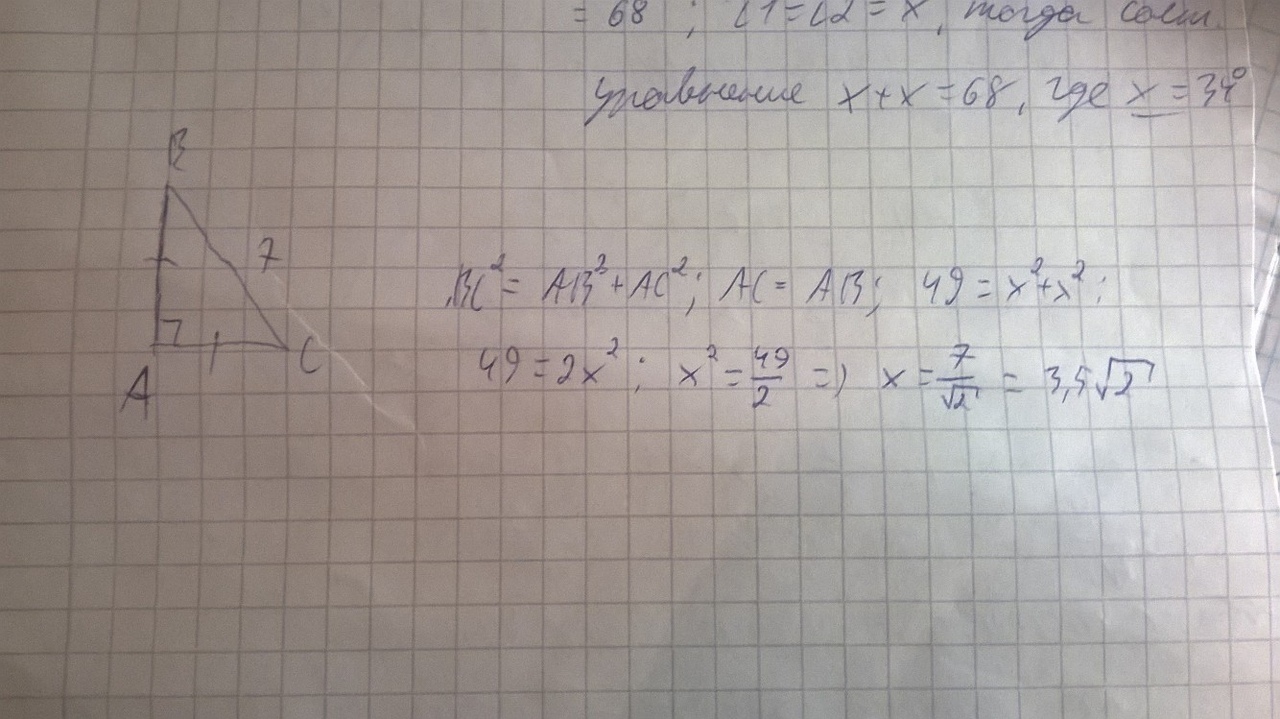 = 68 ; ∠1=∠2 = x, тогда сост.
уравнение x+x=68, где x = 34°
B
7
A
C
BC² = AB²+AC²; AC = AB; 49 = x²+x²;
49 = 2x²; x² = 49/2 => x = 7/√2 = 3,5√2